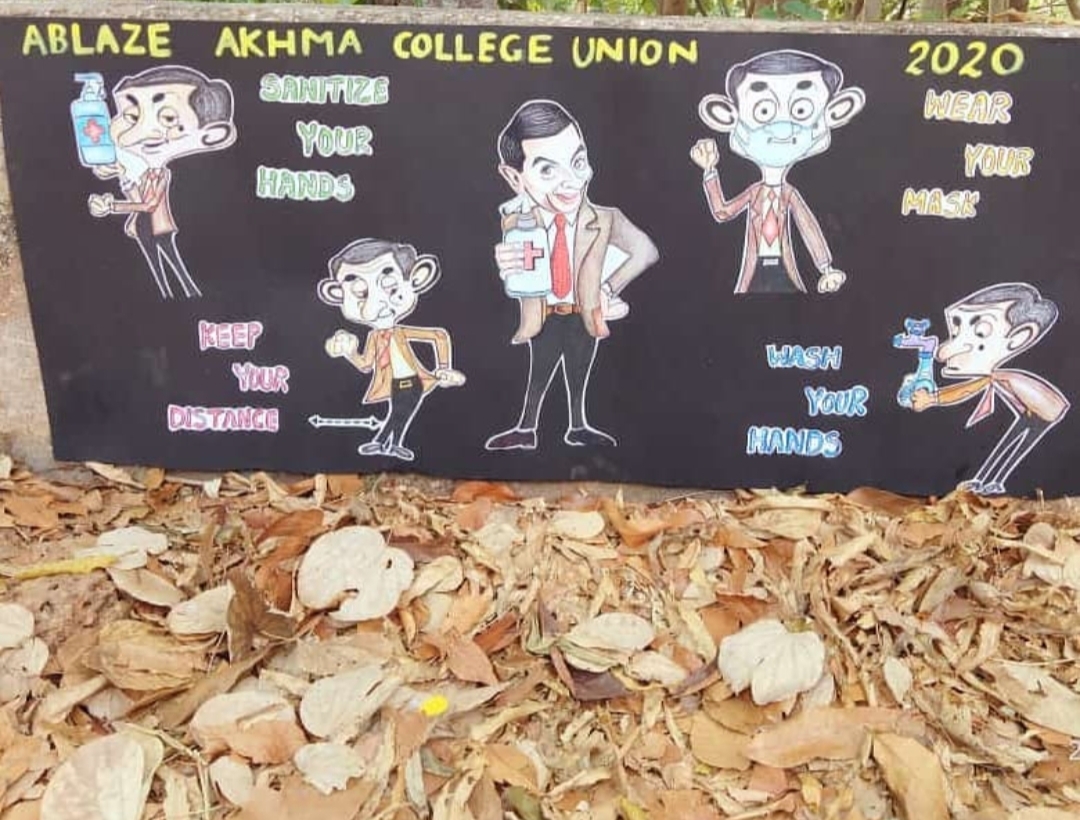 ABLAZE AKHMA COLLEGE UNION 2020
SANITIZE
YOUR
HANDS
WEAR
YOUR
MASK
KEEP
YOUR
DISTANCE
WASH
YOUR
HANDS